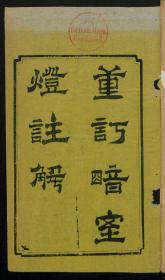 重訂暗室
燈註解